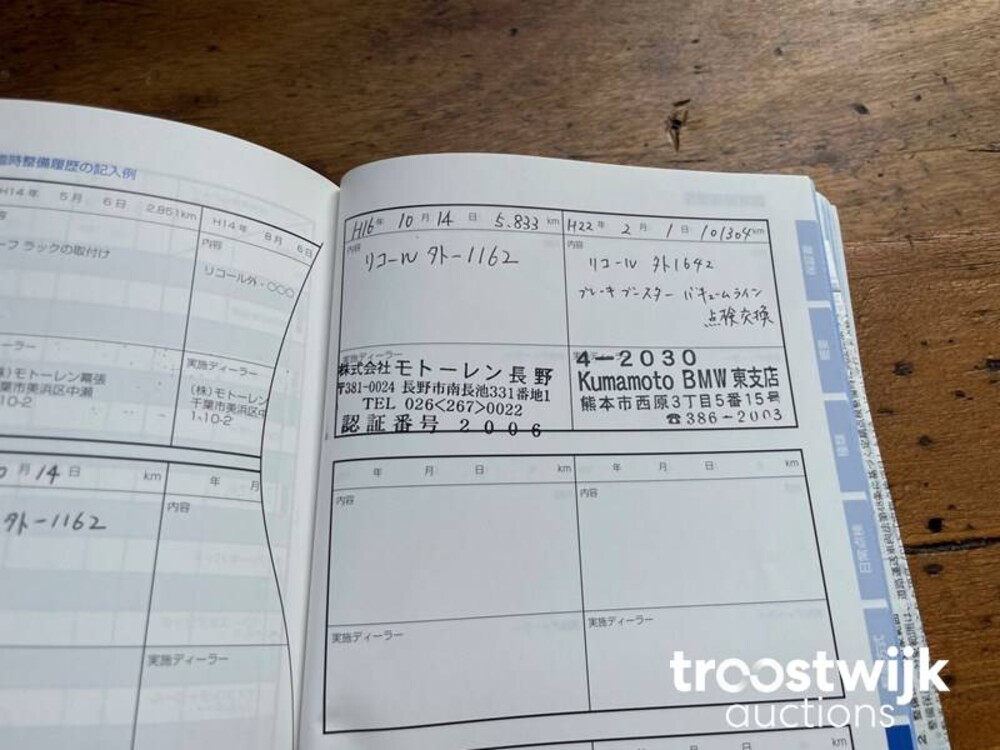 臨時整備履歴の記入例
H14年 5月 6日 2,851km
H14年 8月 6日
内容
ーフ ラックの取付け
リコール外・○○○
実施ディーラー
(株)モトーレン幕張
千葉市美浜区中瀬
1-10-2
(株)モトーレン
千葉市美浜区中
1-10-2
月14日 km
年 月
内容
外-1162
実施ディーラー
H16年 10月14日 5,833km
内容
リコール 外-1162
実施ディーラー
株式会社モトーレン長野
〒381-0024 長野市南長池331番地1
TEL 026<267>0022
認証番号 2006
H22年 2月 1日 101304km
内容
リコール 外1642
ブレーキブースター バキュームライン
点検交換
4-2030
Kumamoto BMW 東支店
熊本市西原3丁目5番15号
☎386-2003
年 月 日 km
内容
実施ディーラー
年 月 日 km
内容
実施ディーラー
km
日常点検
troostwijk
auctions